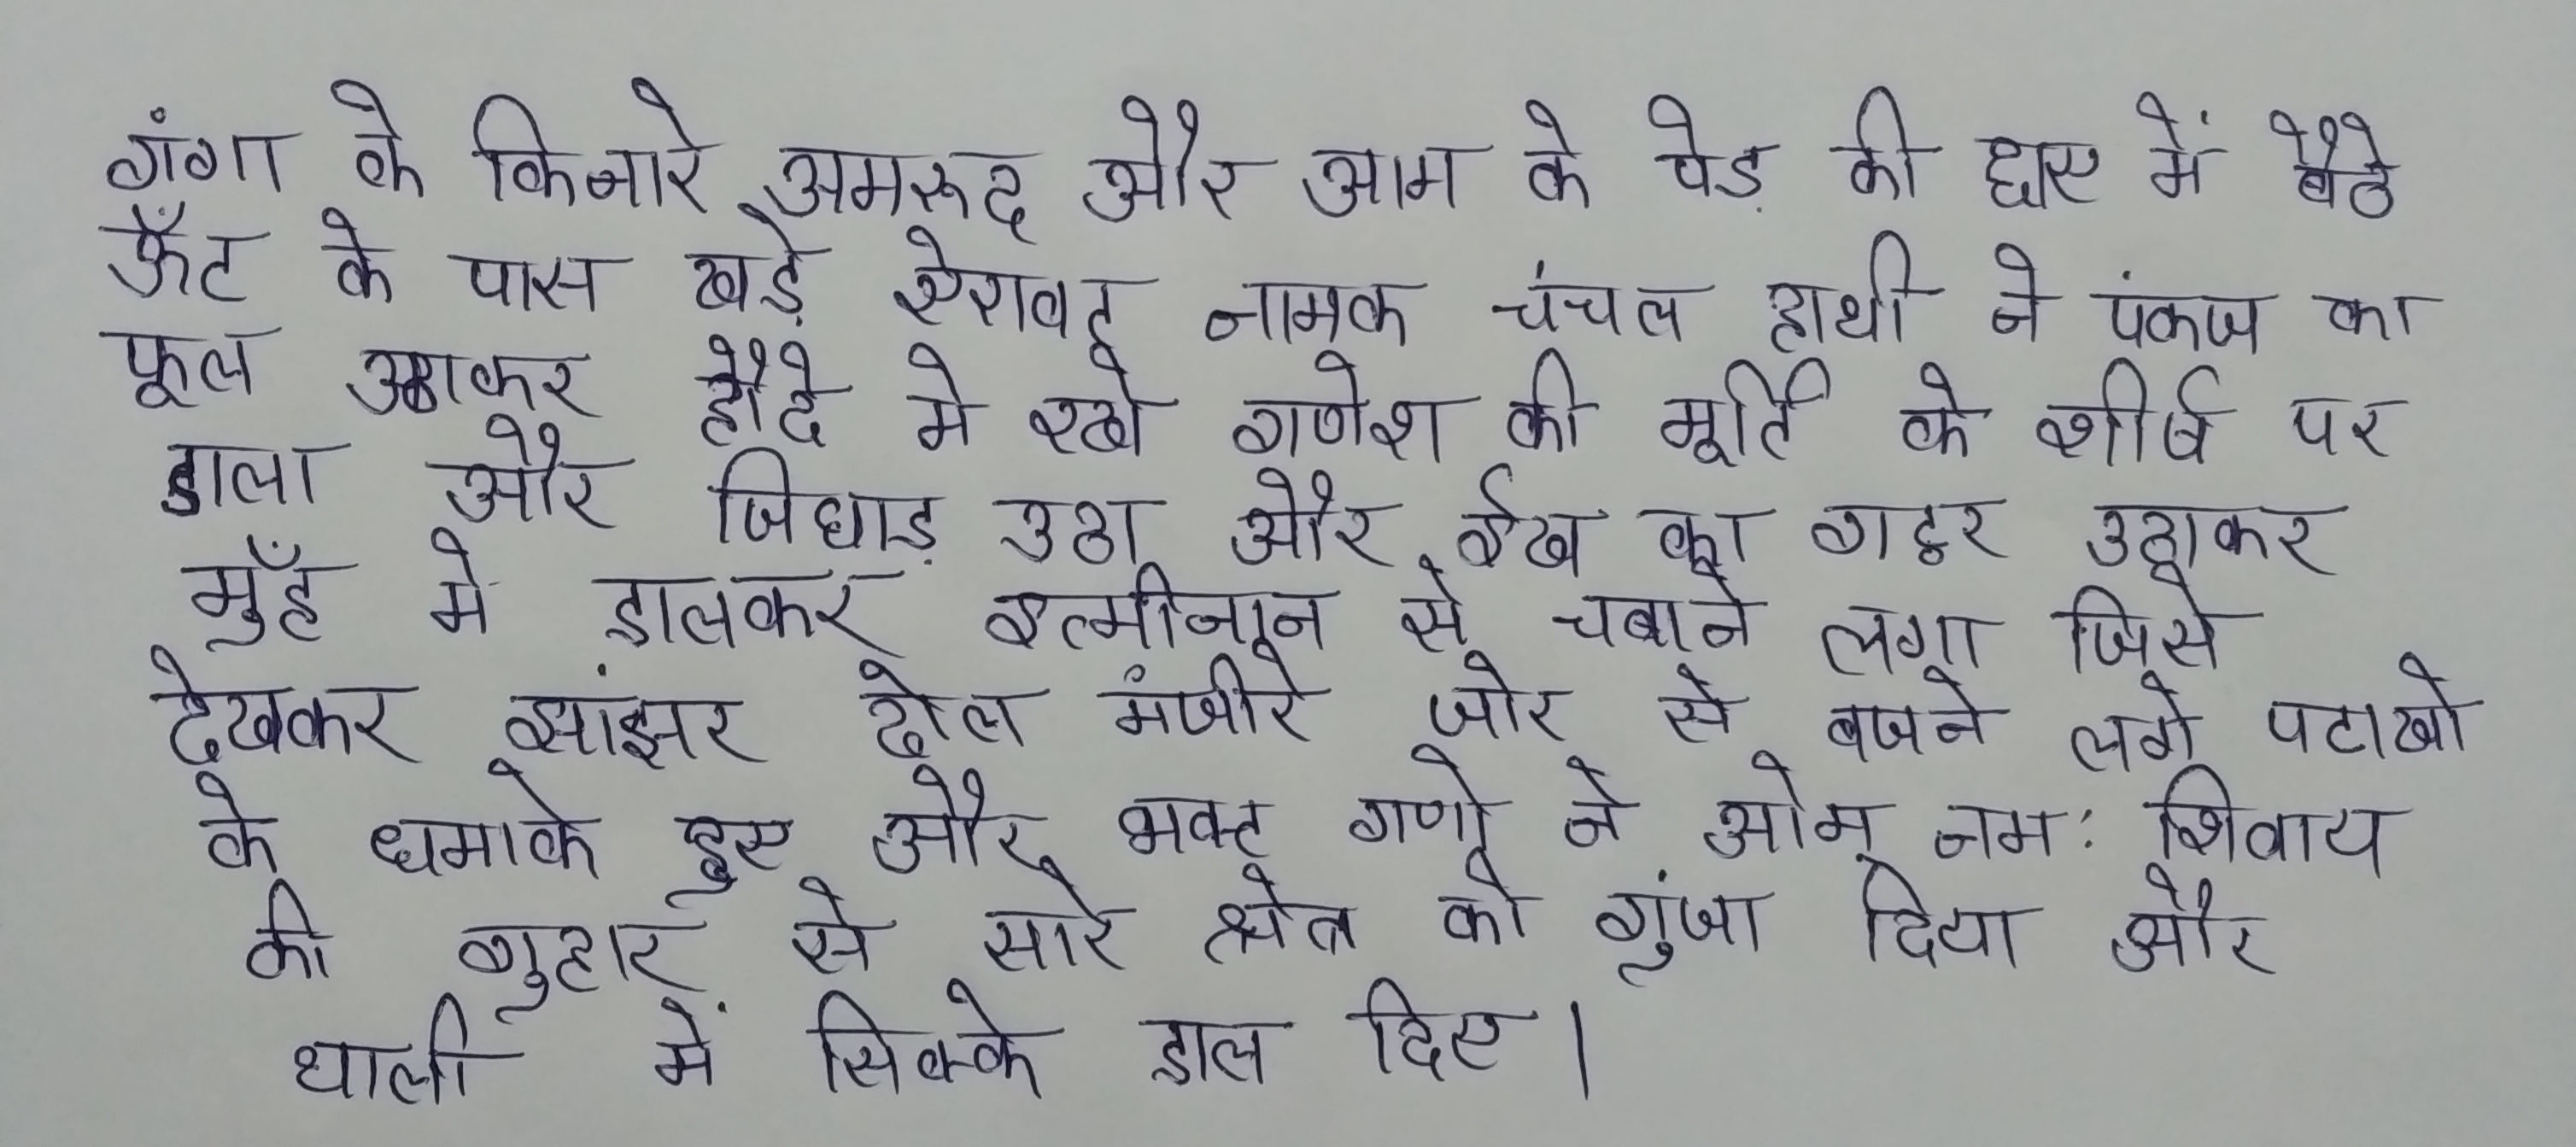 गंगा के किनारे अमरूद और आम के पेड़ की छाए में बैठे
ऊँट के पास खड़े ऐरावत नामक चंचल हाथी ने पंकज का
फूल उठाकर हौदे मे रखे गणेश की मूर्ति के शीर्ष पर
डाला और जिघाड़ उठा और ईख का गट्ठर उठाकर
मुँह मे डालकर इत्मीनान से चबाने लगा जिसे
देखकर झांझर ढोल मंजीरे जोर से बजने लगे पटाखो
के धमाके हुए और भक्त गणो ने ओम् नमः शिवाय
की गुहार से सारे क्षेत्र को गुंजा दिया और
थाली में सिक्के डाल दिए।